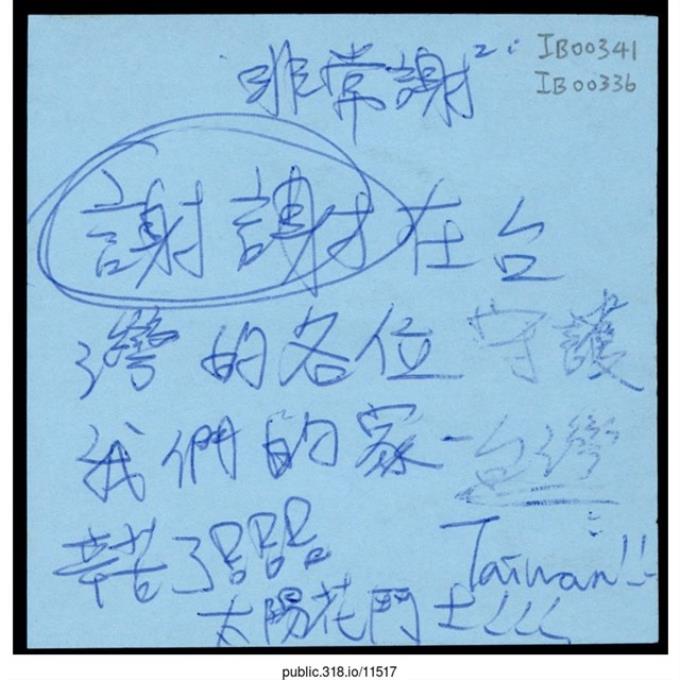 非常謝²： IB00341
IB00336
謝謝在台
灣的各位守護
我們的家-台灣
辛苦了
Taiwan!!
太陽花鬥士!!!
public.318.io/11517